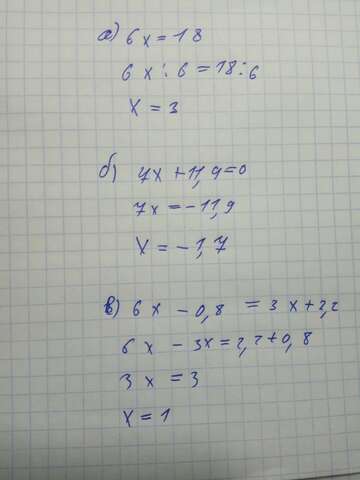 а) 6x = 18
6x : 6 = 18 : 6
x = 3
б) 7x + 11,9 = 0
7x = -11,9
x = -1,7
в) 6x - 0,8 = 3x + 2,2
6x - 3x = 2,2 + 0,8
3x = 3
x = 1